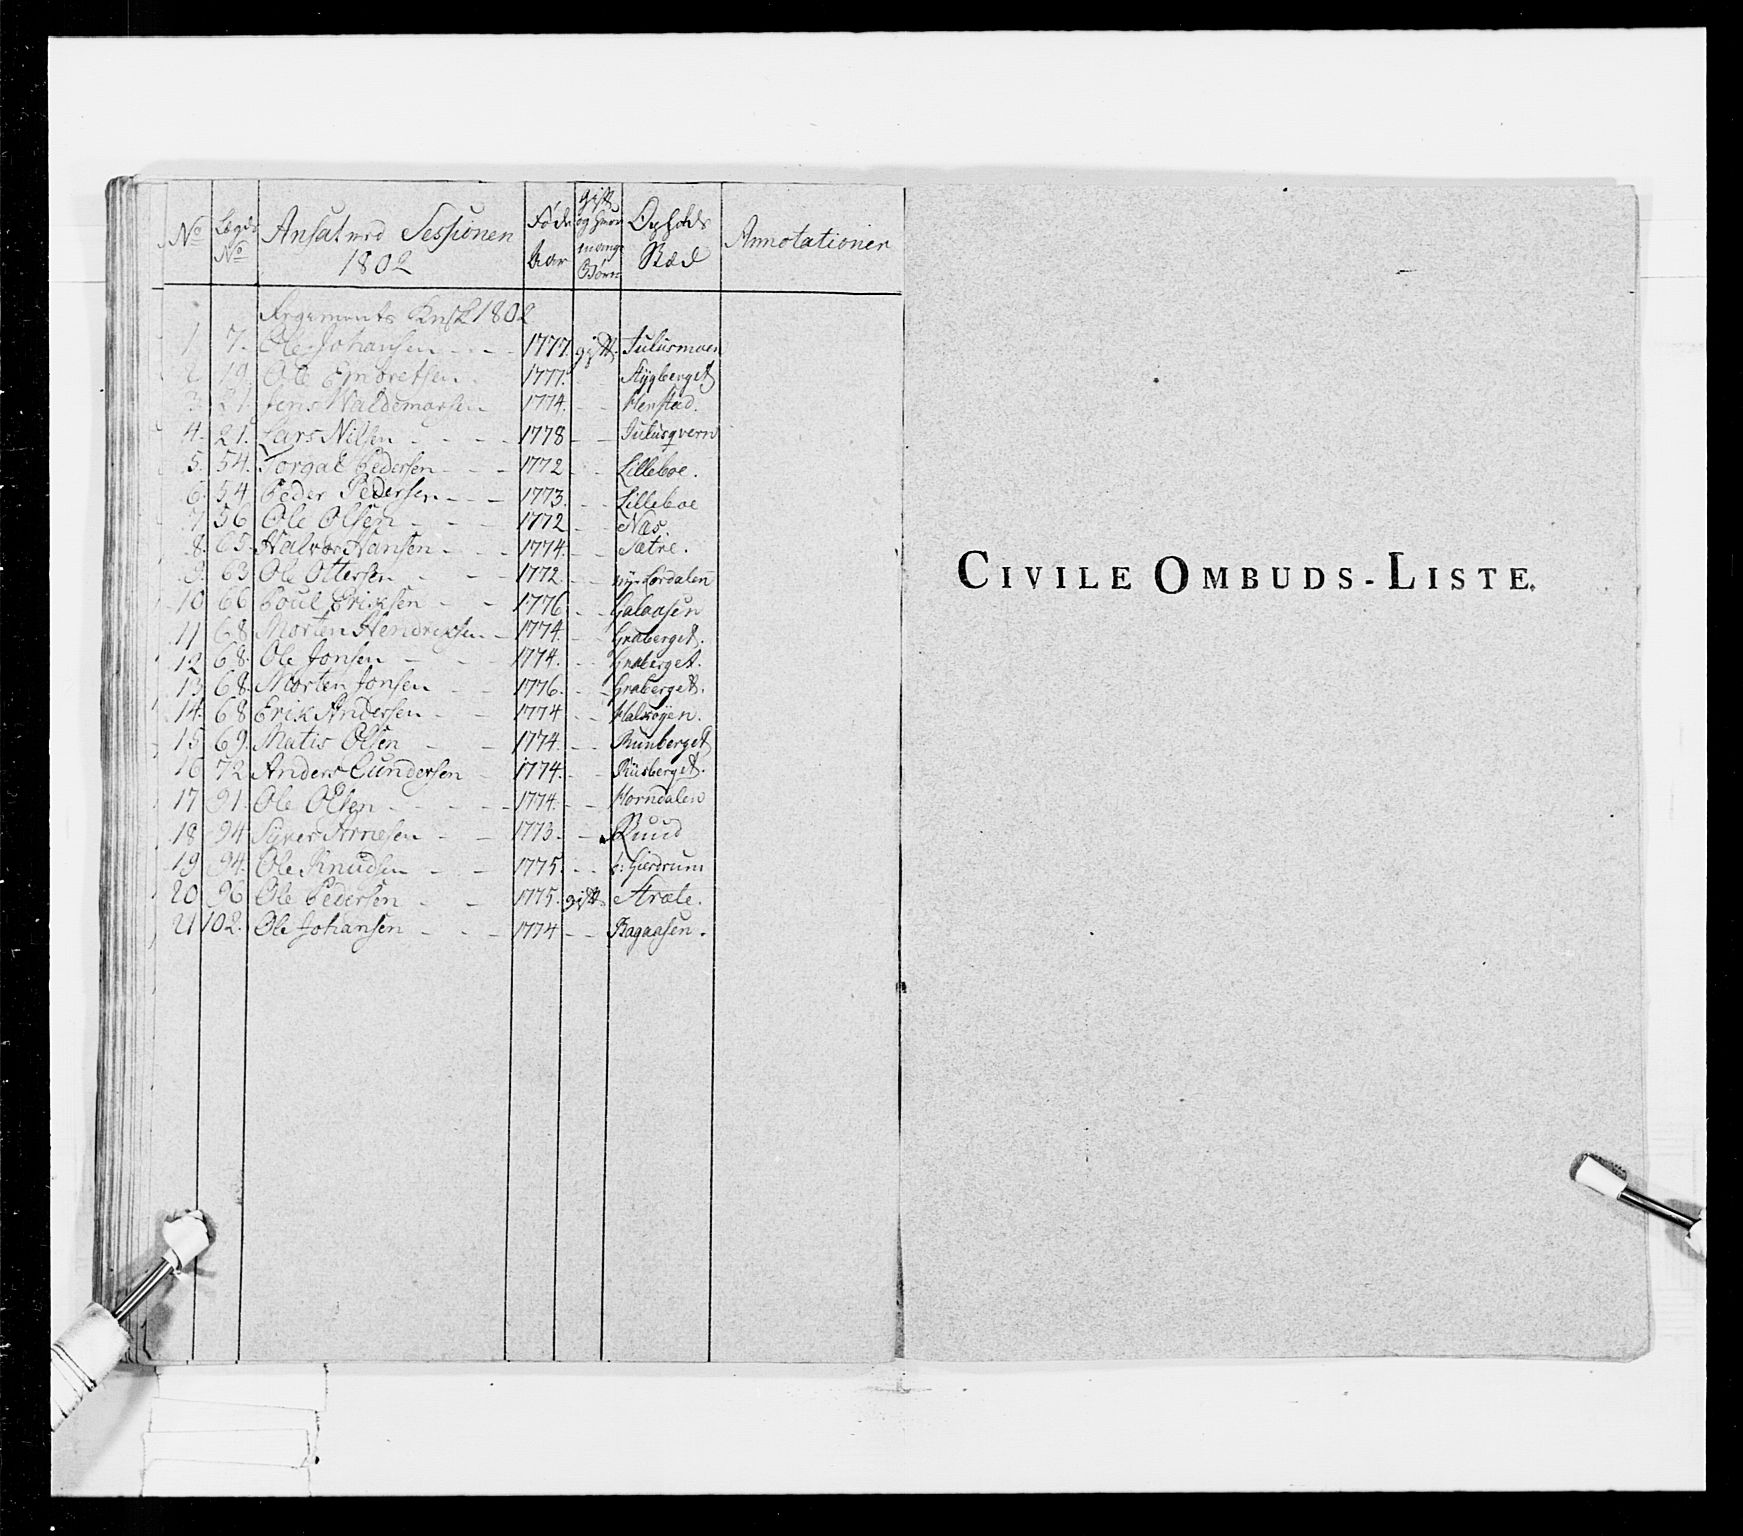 No Lægds No Ansat ved Sessionen 1802 Føde Aar gift og hvor mange Børn Opholds Stæd Annotationer
Regiments Kusk 1802
1 7. Ole Johansen - - - 1777. gift. Julusmoen
2 19. Ole Embretsen - 1777. Stygberget
3. 21. Jens Waldemarsen 1774. - - Henstad.
4. 21. Lars Nilsen - - - - 1778 - - Julusqvern
5. 54. Torgal Pedersen - - - 1772 - - Lilleboe.
6. 54 Peder Pedersen - - - 1773. - - Lilleboe
7 56 Ole Olsen - - - 1772 - Næs.
8. 65. Halvor Hansen - - - 1774. - - Sætre.
9. 63 Ole Ottersen - - - 1772. - - nÿe Lørdalen
10 66 Poul Eriksen - - 1776 - - Galaasen
11 68 Morten Hendriksen - - 1774. - - Graberget.
12 68. Ole Jonsen - - - 1774. - - Graberget.
13 68. Morten Jonsen - - 1776. - - Graberget.
14. 68 Erik Andersen - - 1774 - - Halsøyen.
15 69. Matis Olsen - - 1774. - - Runberget
16 72 Anders Gundersen - 1774. - - Riisberget.
17 91. Ole Olsen - - - - - 1774. - - Horndalen
18 94 Syver Arnesen - - 1773. - - Ruud
19 94. Ole Knudsen - - 1775. - - Gierdrum
20 96 Ole Pedersen - - 1775. gift. Stræte.
21 102. Ole Johansen - - - 1774 - - Bagaasen.
CIVILE OMBUDS-LISTE.